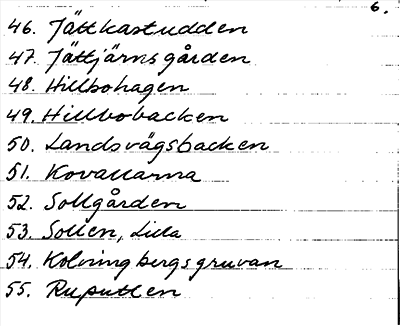 6.
46. Jättkastudden
47. Jättjärnsgården
48. Hillbohagen
49. Hillbobacken
50. Landsvägsbacken
51. Kovallarna
52. Sollgården
53. Sollen, Lilla
54. Kolningbergsgruvan
55. Ruputten